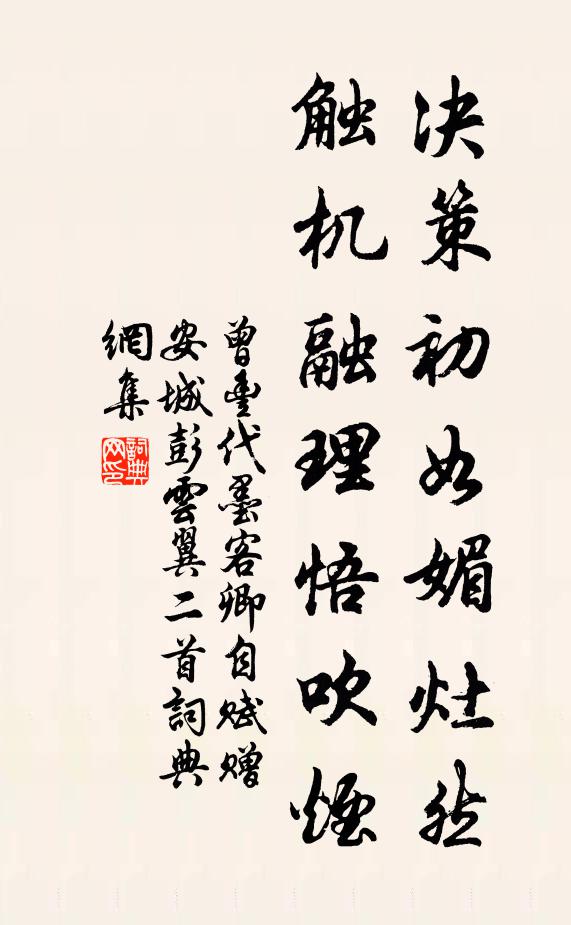 决策初如媚灶然
触机融理悟吹煙
曾豊代墨客卿自赋赠
安城彭雲翼二首詞典
網集
詞典網印